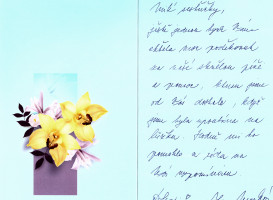 Milé sestřičky,
ještě jednou bych Vám
chtěla moc poděkovat
za vaši skvělou péči
a pomoc, kterou jsem
od Vás dostala, když
jsem byla upoutána na
lůžko. Hodně mi to
pomohlo a ráda na
Vás vzpomínám.